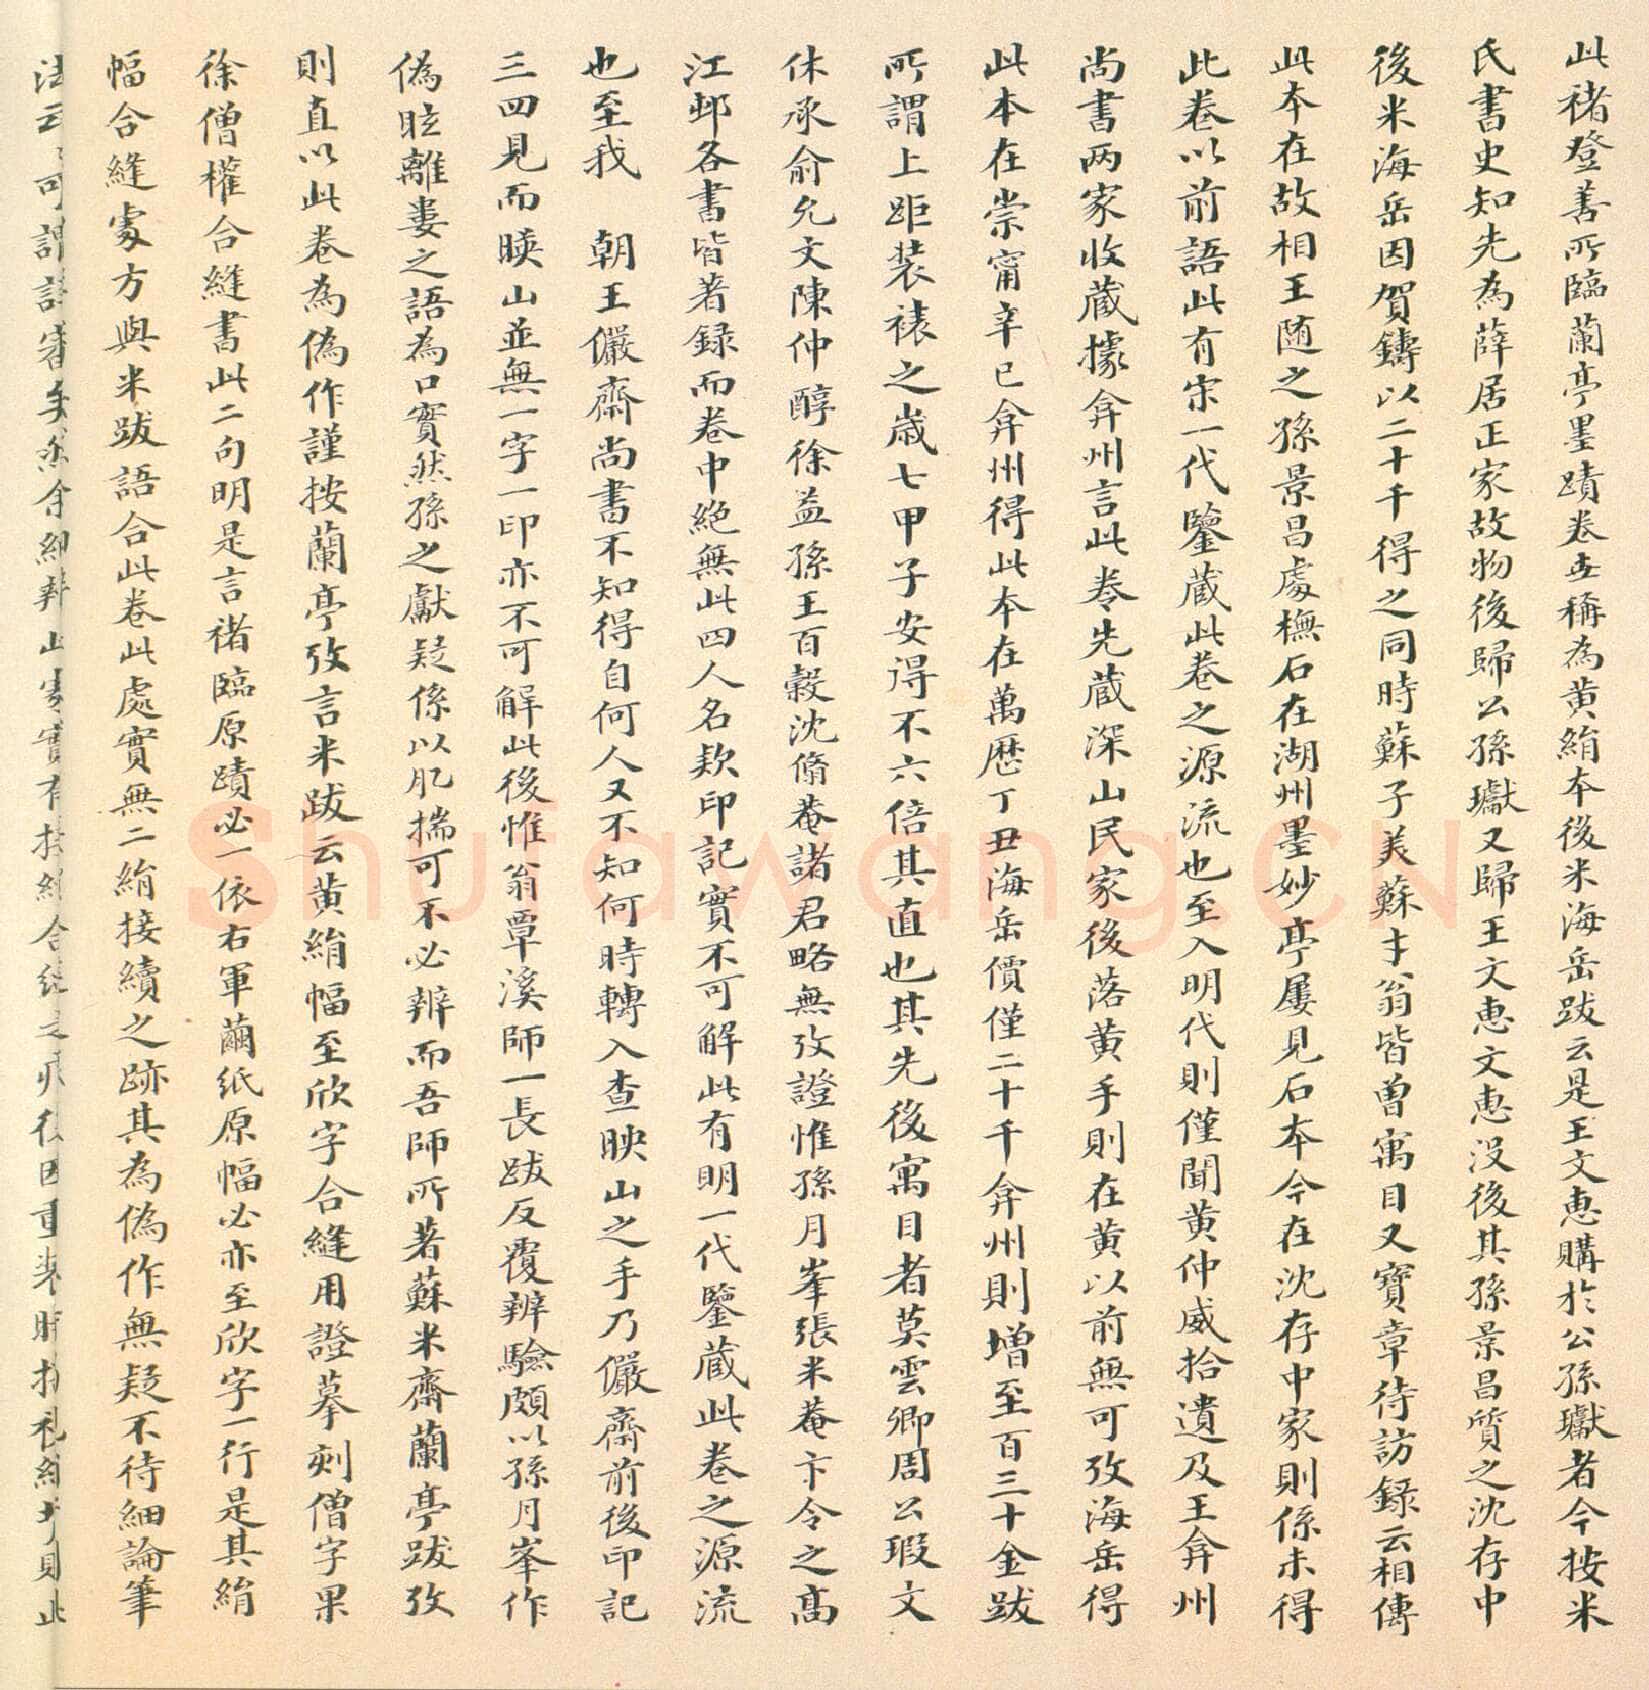 此褚登善所臨蘭亭墨蹟卷世稱為黄絹本後米海岳跋云是王文惠購於公孫瓛者今按米
氏書史知先為薛居正家故物後歸公孫瓛又歸王文惠文惠没後其孫景昌質之沈存中
後米海岳因賀鑄以二十千得之同時蘇子美蘇才翁皆曽寓目又寶章待訪録云相傳
此本在故相王随之孫景昌處橅石在湖州墨妙亭屢見石本今在沈存中家則係未得
此卷以前語此有宋一代鑒蔵此卷之源流也至入明代則僅聞黄仲威拾遺及王弇州
尚書两家收蔵據弇州言此卷先蔵深山民家後落黄手則在黄以前無可攷海岳得
此本在崇甯辛巳弇州得此本在萬歴丁丑海岳價僅二十千弇州則增至百三十金跋
所謂上距装裱之歳七甲子安得不六倍其直也其先後寓目者莫雲卿周公瑕文
休承俞允文陳仲醇徐益孫王百穀沈脩菴諸君略無攷證惟孫月峯張米菴卞令之髙
江邨各書皆著録而卷中絶無此四人名欵印記實不可解此有明一代鑒蔵此卷之源流
也至我 朝王儼齋尚書不知得自何人又不知何時轉入查映山之手乃儼齋前後印記
三四見而暎山並無一字一印亦不可解此後惟翁覃溪師一長跋反覆辨驗頗以孫月峯作
偽眩離婁之語為口實然孫之獻疑係以肊揣可不必辨而吾師所著蘇米齋蘭亭跋攷
則直以此卷為偽作謹按蘭亭攷言米跋云黄絹幅至欣字合縫用證摹刻僧字果
徐僧權合縫書此二句明是言褚臨原蹟必一依右軍繭紙原幅必亦至欣字一行是其絹
幅合縫處方與米跋語合此卷此處實無二絹接續之跡其為偽作無疑不待細論筆
法云云可謂詳審矣然余細辨此處實有接絹合縫之痕後因重装時